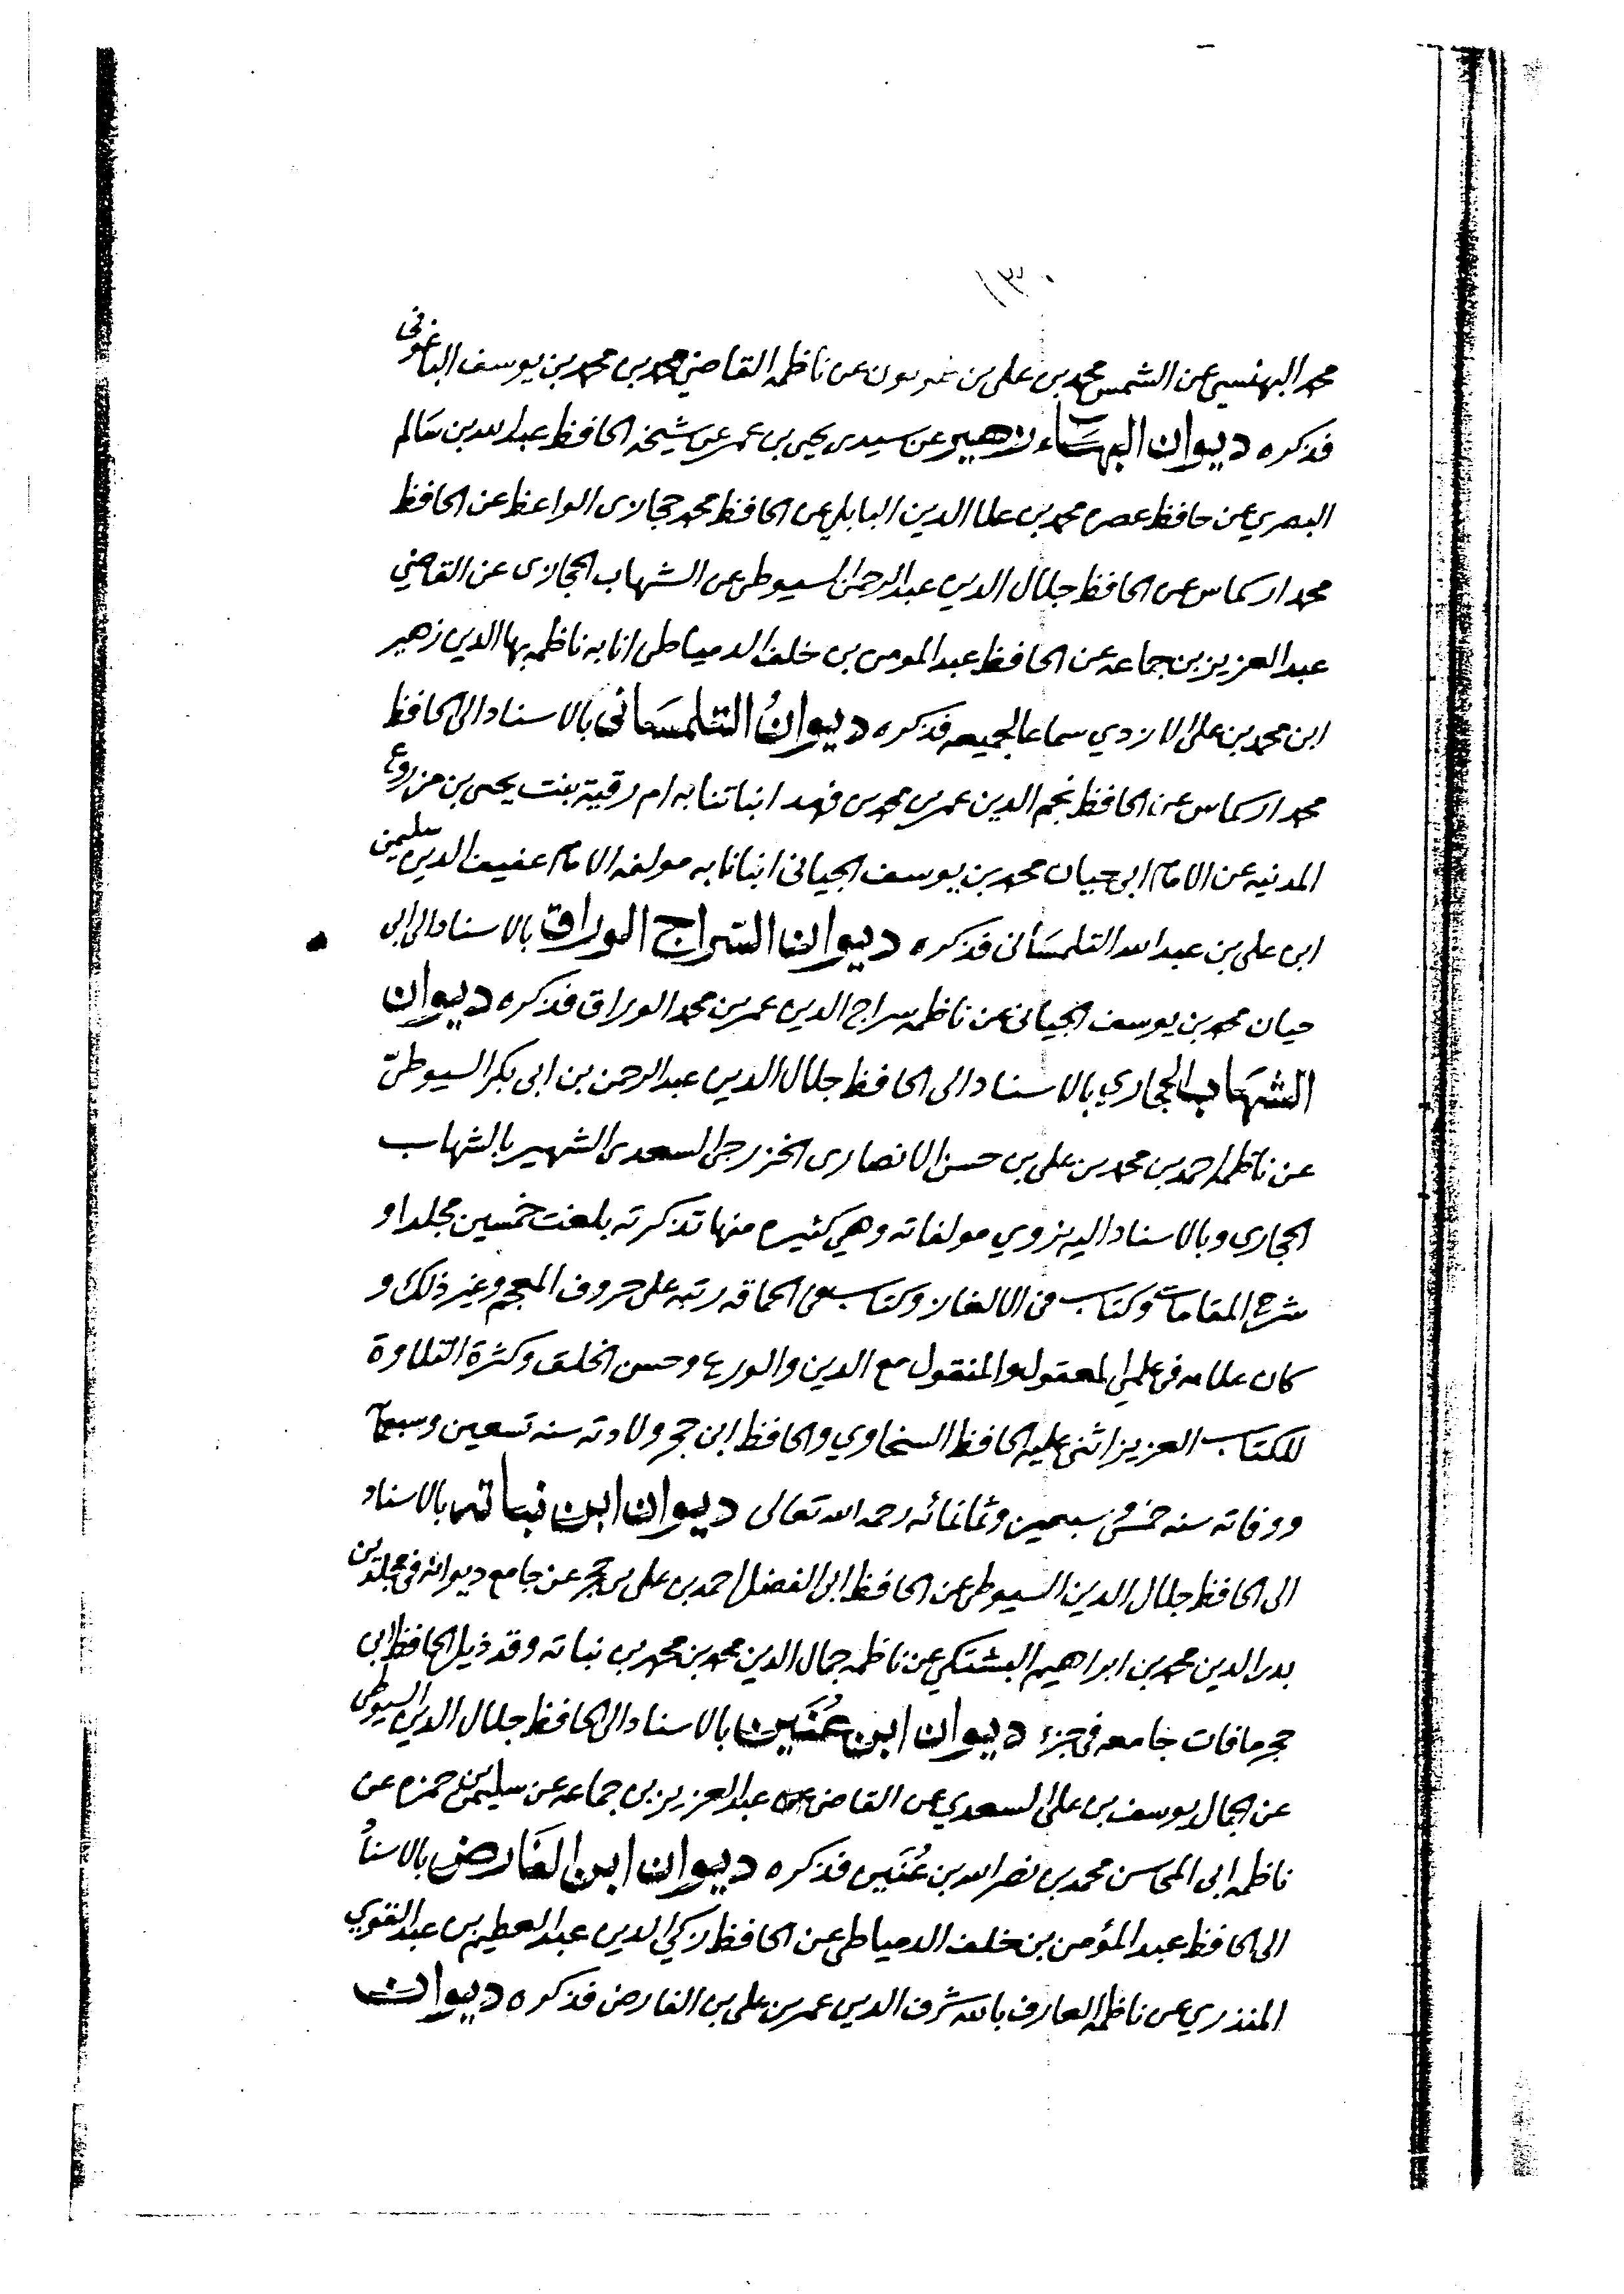 ١٣٠
محمد البهنسي عن الشمس محمد بن علي بن عن ناظمه القاضي محمد بن محمد بن يوسف الباعوني
فذكره ديوان البهاء زهير عن سيدي يحيى بن عمر عن شيخه الحافظ عبد الله بن سالم
البصري عن حافظ عصره محمد بن علا الدين البابلي عن الحافظ محمد حجازي الواعظ عن الحافظ
محمد اركماس عن الحافظ جلال الدين عبد الرحمن السيوطي عن الشهاب الحجازي عن القاضي
عبد العزيز بن جماعه عن الحافظ عبد المومن بن خلف الدمياطي انا به ناظمه بها الدين زهير
ابن محمد بن علي الازدي سماعا لجميعه فذكره ديوانُ التلمسَاني بالاسناد الى الحافظ
محمد اركماس عن الحافظ نجم الدين عمر بن محمد بن فهد انباتنا به ام رقية بنت يحيى بن مزروع
المدنيه عن الامام ابي حيان محمد بن يوسف الجياني انبانا به مولفه الامام عفيف الدين سليمن
ابن علي بن عبد الله التلمسَاني فذكره ديوان السّراج الوراق بالاسناد الى ابي
حيان محمد بن يوسف الجياني عن ناظمه سراج الدين عمر بن محمد الوراق فذكره ديوان
الشهَاب الحجازي بالاسناد الى الحافظ جلال الدين عبد الرحمن بن ابي بكر السيوطيّ
عن ناظمه احمد بن محمد بن علي بن حسن الانصاري الخزرجي السعدي الشهير بالشهاب
الحجازي وبالاسناد اليه نروي مولفاته وهي كثيره منها تذكرته بلغت خمسين مجلدا و
شرح المقامات وكتاب في الالغاز وكتاب في الحماقه رتبه على حروف المعجم وغير ذلك و
كان علامه في علمي المعقول والمنقول مع الدين والورع وحسن الخلق وكثرة التلاوة
للكتاب العزيز اثنى عليه الحافظ السخاوي والحافظ ابن حجر ولادته سنه تسعين وسبعمائة
ووفاته سنه خمس وسبعين وثمانمائه رحمه الله تعالى ديوان ابن نباته بالاسناد
الى الحافظ جلال الدين السيوطي عن الحافظ ابي الفضل احمد بن علي بن حجر عن جامع ديوانه في مجلدين
بدر الدين محمد بن ابراهيم البشتكي عن ناظمه جمال الدين محمد بن محمد بن نباته وقد ذيل الحافظ ابن
حجر مافات جامعه في جزء ديوان ابن عُنَين بالاسناد الى الحافظ جلال الدين السيوطي
عن الجمال يوسف بن علي السعدي عن القاضي عبد العزيز بن جماعه عن سليمن بن حمزه عن
ناظمه ابي المحاسن محمد بن نصر الله بن عُنَين فذكره ديوان ابن الفَارض بالاسناد
الى الحافظ عبد المؤمن بن خلف الدمياطي عن الحافظ زكي الدين عبد العظيم بن عبد القوي
المنذري عن ناظمه العارف بالله شرف الدين عمر بن علي بن الفارض فذكره ديوان